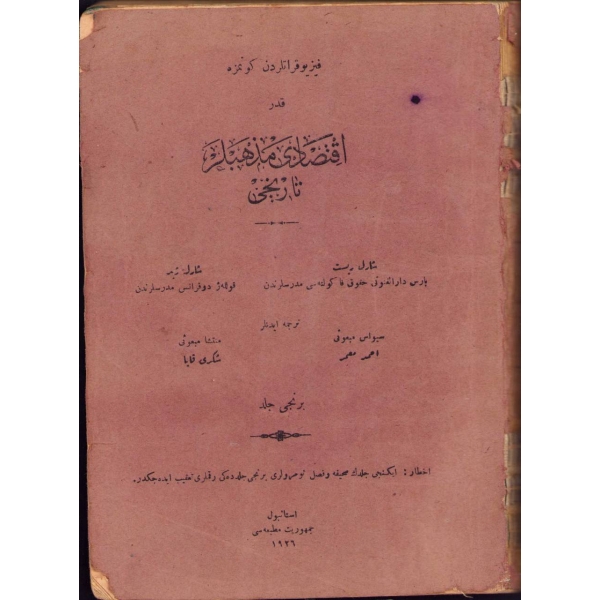 فیزیوقراتلردن کونمزه
قدر
اقتصادی مذهبلر
تاریخی
شارل ریست
پارس دارالفنونی حقوق فاکولته‌سی مدرسلرندن
شارل ژید
قوله‌ژ دوفرانس مدرسلرندن
ترجمه ایدنلر
سیواس مبعوثی
احمد معمر
منتشا مبعوثی
شکری قایا
برنجی جلد
اخطار : ایکنجی جلدك صحیفه و فصل نومرولری برنجی جلدده‌کی رقملری تعقیب ایده‌جکدر.
استانبول
جمهوریت مطبعه‌سی
١٩٢٦